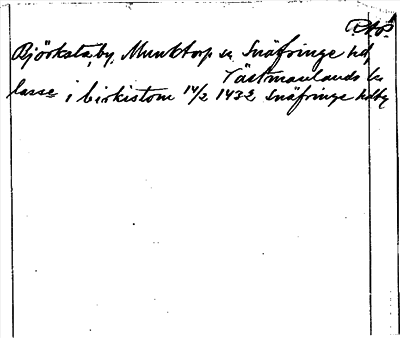 RAp
Björksta, by, Munktorp sn Snäfringe hd,
Västmanlands län
lasse i birkistom 14/2 1432 Snäfringe hdby